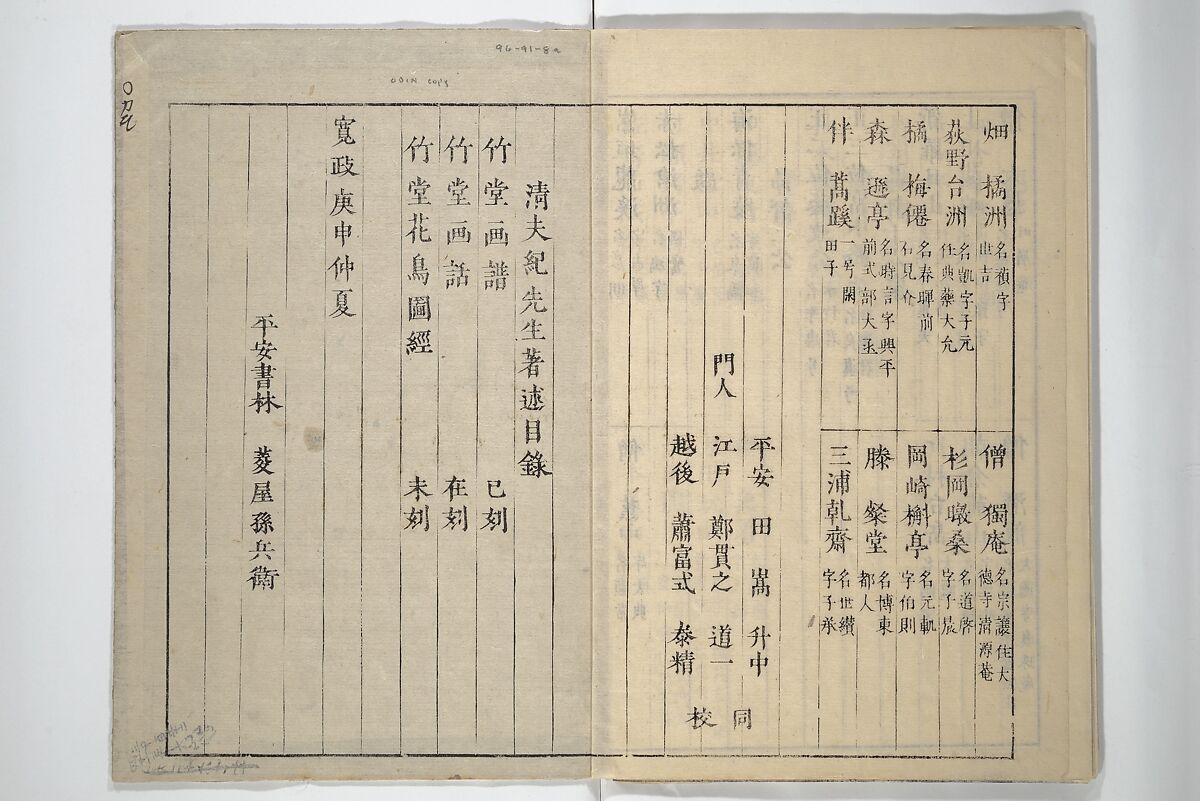 畑　橘洲 名積字世吉
荻野台洲 名凱字子元任典藥大允
橘　梅僊 名春暉前石見介
森　遜亭 名時言字興平前式部大丞
伴　蒿蹊 一号閑田子
僧　獨庵 名宗讓住大德寺清源菴
杉岡暾桑 名道啓字子晨
岡崎槲亭 名元軌字伯則
滕　粲堂 名博東都人
三浦乾齋 名世纘字子承
平安　田　嵩　升中
門人　江戸　鄭貫之　道一
越後　蕭富式　泰精
同校
清夫紀先生著述目錄
竹堂画譜　已刻
竹堂画話　在刻
竹堂花鳥圖經　未刻
寛政庚申仲夏
平安書林　菱屋孫兵衛
96-91-8a
ODIN copy